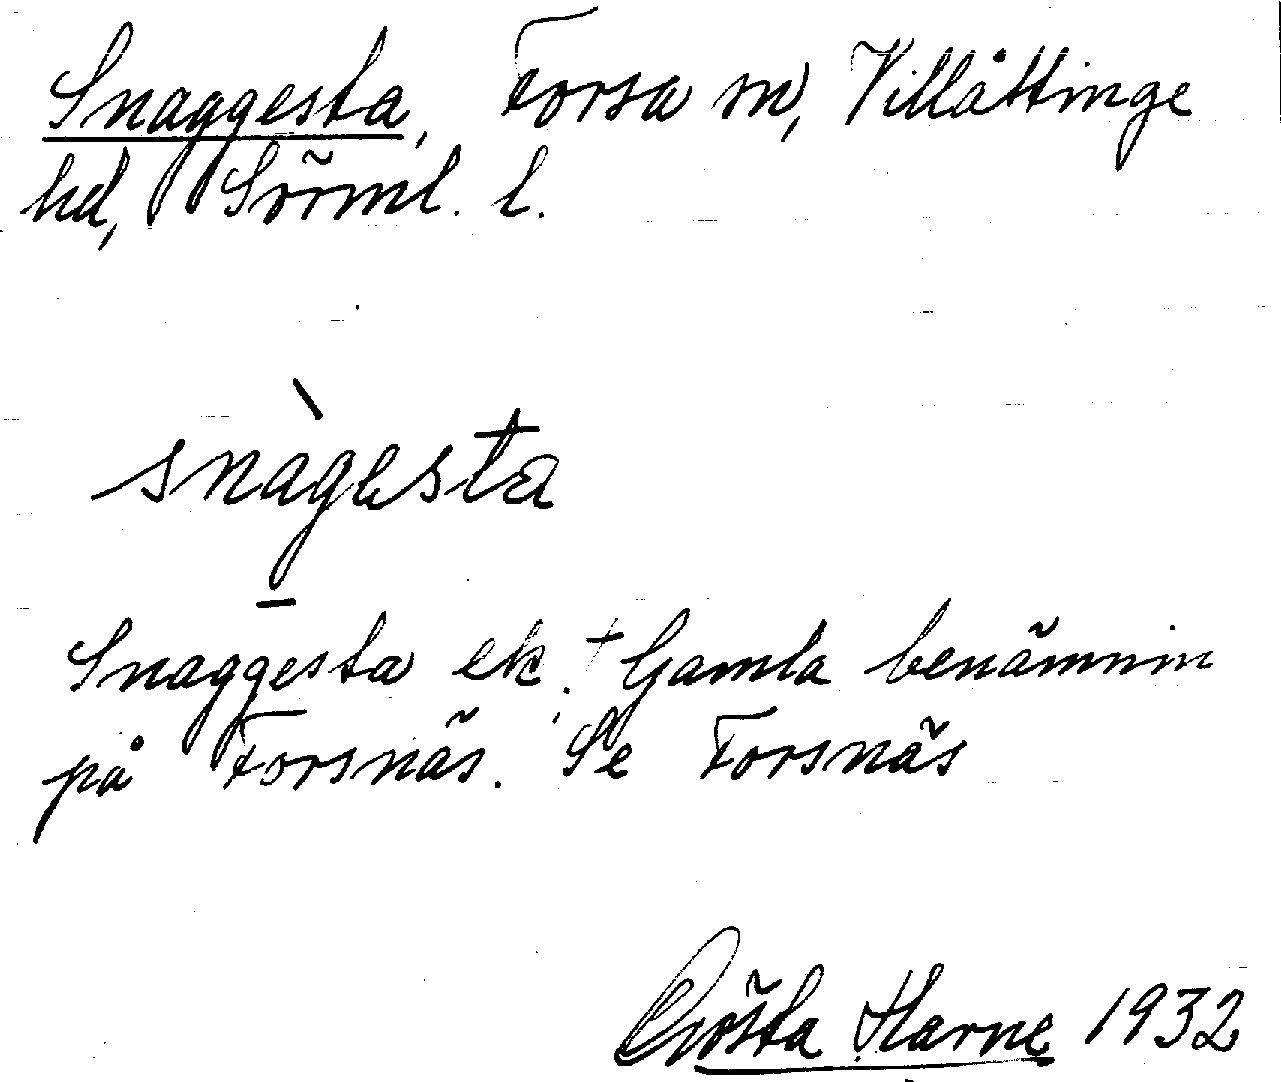 Snaggesta, Forsa sn, Villåttinge
hd, Sörml. l.
snàgesta
Snaggesta ek. † Gamla benämnin
på Forsnäs. Se Forsnäs
Gösta Harne 1932